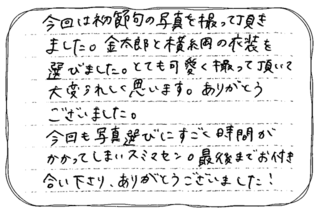 今回は初節句の写真を撮って頂き
ました。金太郎と横綱の衣装を
選びました。とても可愛く撮って頂いて
大変うれしく思います。ありがとう
ございました。
今回も写真選びにすごく時間が
かかってしまいスミマセン。最後までお付き
合い下さり、ありがとうございました！